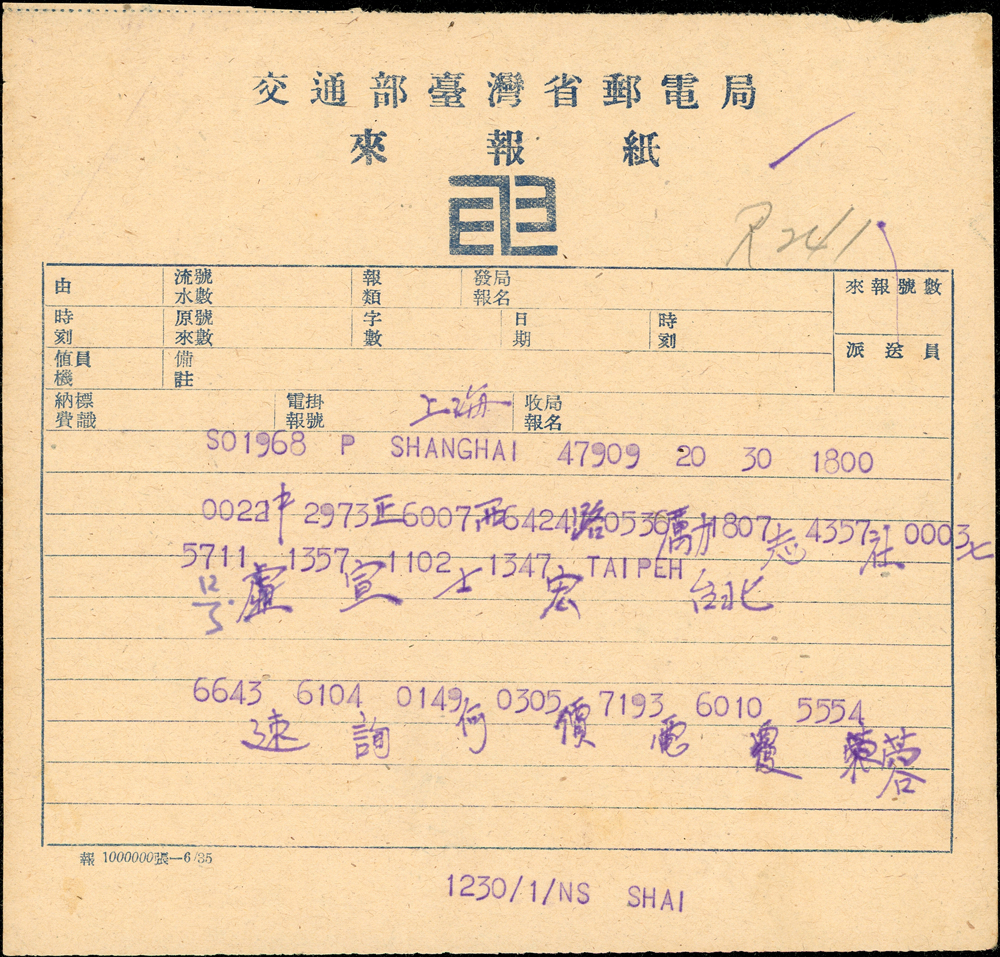 交通部臺灣省郵電局
來報紙
R241
由 流水號數 報類 發局報名 來報號數
時刻 原來號數 字數 日期 時刻 派送員
值機員 備註
納費標識 電報掛號 上海 收報局名
SO1968 P SHANGHAI 47909 20 30 1800
0022中 2973正 6007西 6424路 0536勵 1807志 4357社 0003七
5711 1357 1102 1347 TAIPEH
号 盧 宣 士 宏 台北
6643 6104 0149 0305 7193 6010 5554
速 詢 何 價 電 覆 蓉
報 1000000張—6/35
1230/1/NS SHAI